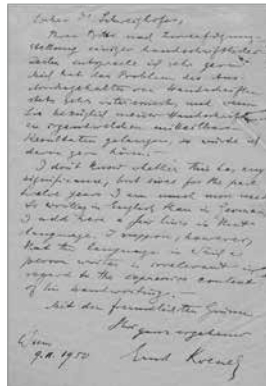 Lieber Dr. Schweighofer,
Ihrer Bitte nach Zurverfügung-
stellung einiger handschriftlicher
Zeilen entspreche ich sehr gern.
Mich hat das Problem des Aus-
druckgehaltes von Handschriften
stets sehr interessiert, und wenn
Sie bezüglich meiner Handschrift
zu irgendwelchen mitteilbaren
Resultaten gelangen, so würde ich
davon gern hören.
I don't know whether this has any
significance, but since for the past
twelve years I am much more used
to writing in English than in German
I add here a few lines in that
language. I suppose, however,
that the language in which a
person writes is irrelevant in
regard to the expressive content
of his handwriting.
Mit den freundlichsten Grüssen
Ihr
ganz ergebener
Ernst Krenek
Wien
1950